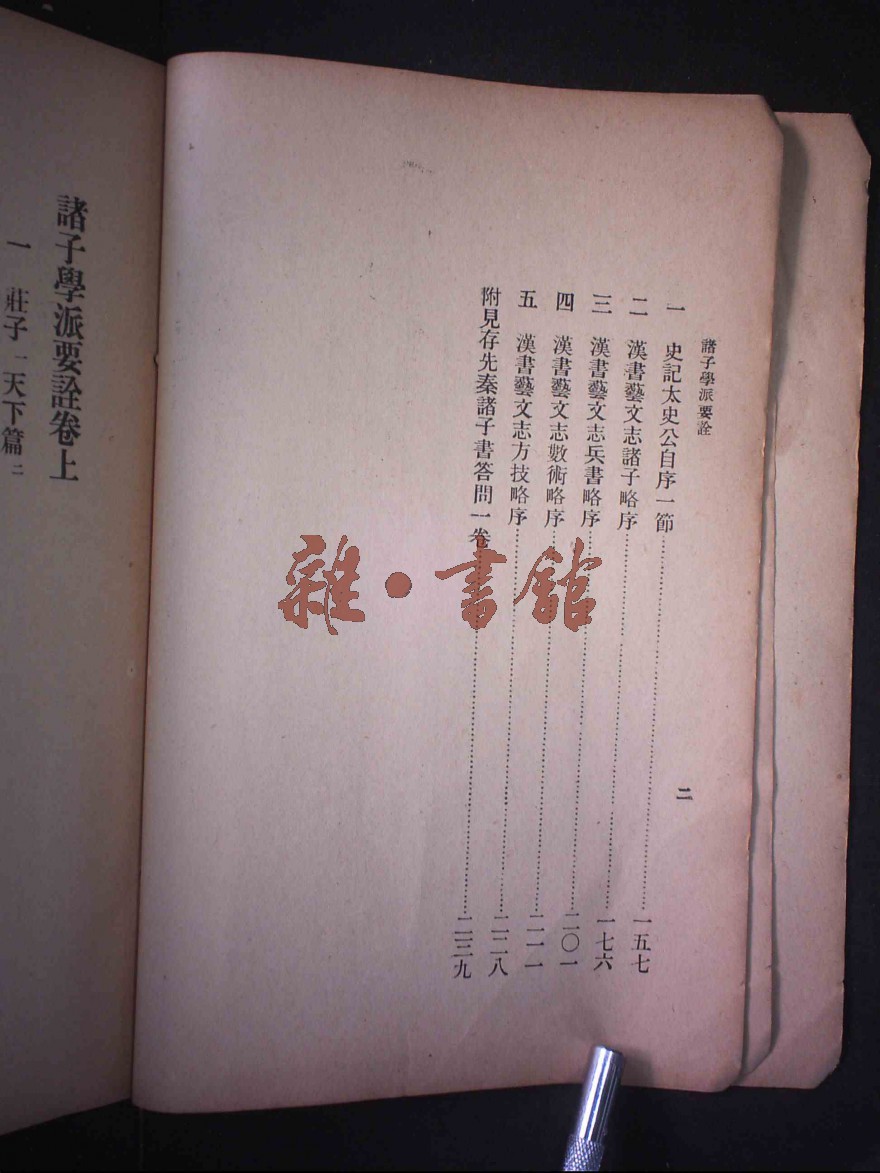 諸子學派要詮
二
一 史記太史公自序一節……一五七
二 漢書藝文志諸子略序……一七六
三 漢書藝文志兵書略序……二〇一
四 漢書藝文志數術略序……二一一
五 漢書藝文志方技略序……二二八
附見存先秦諸子書答問一卷……二三九
諸子學派要詮卷上
一 莊子一天下篇二
雜·書館